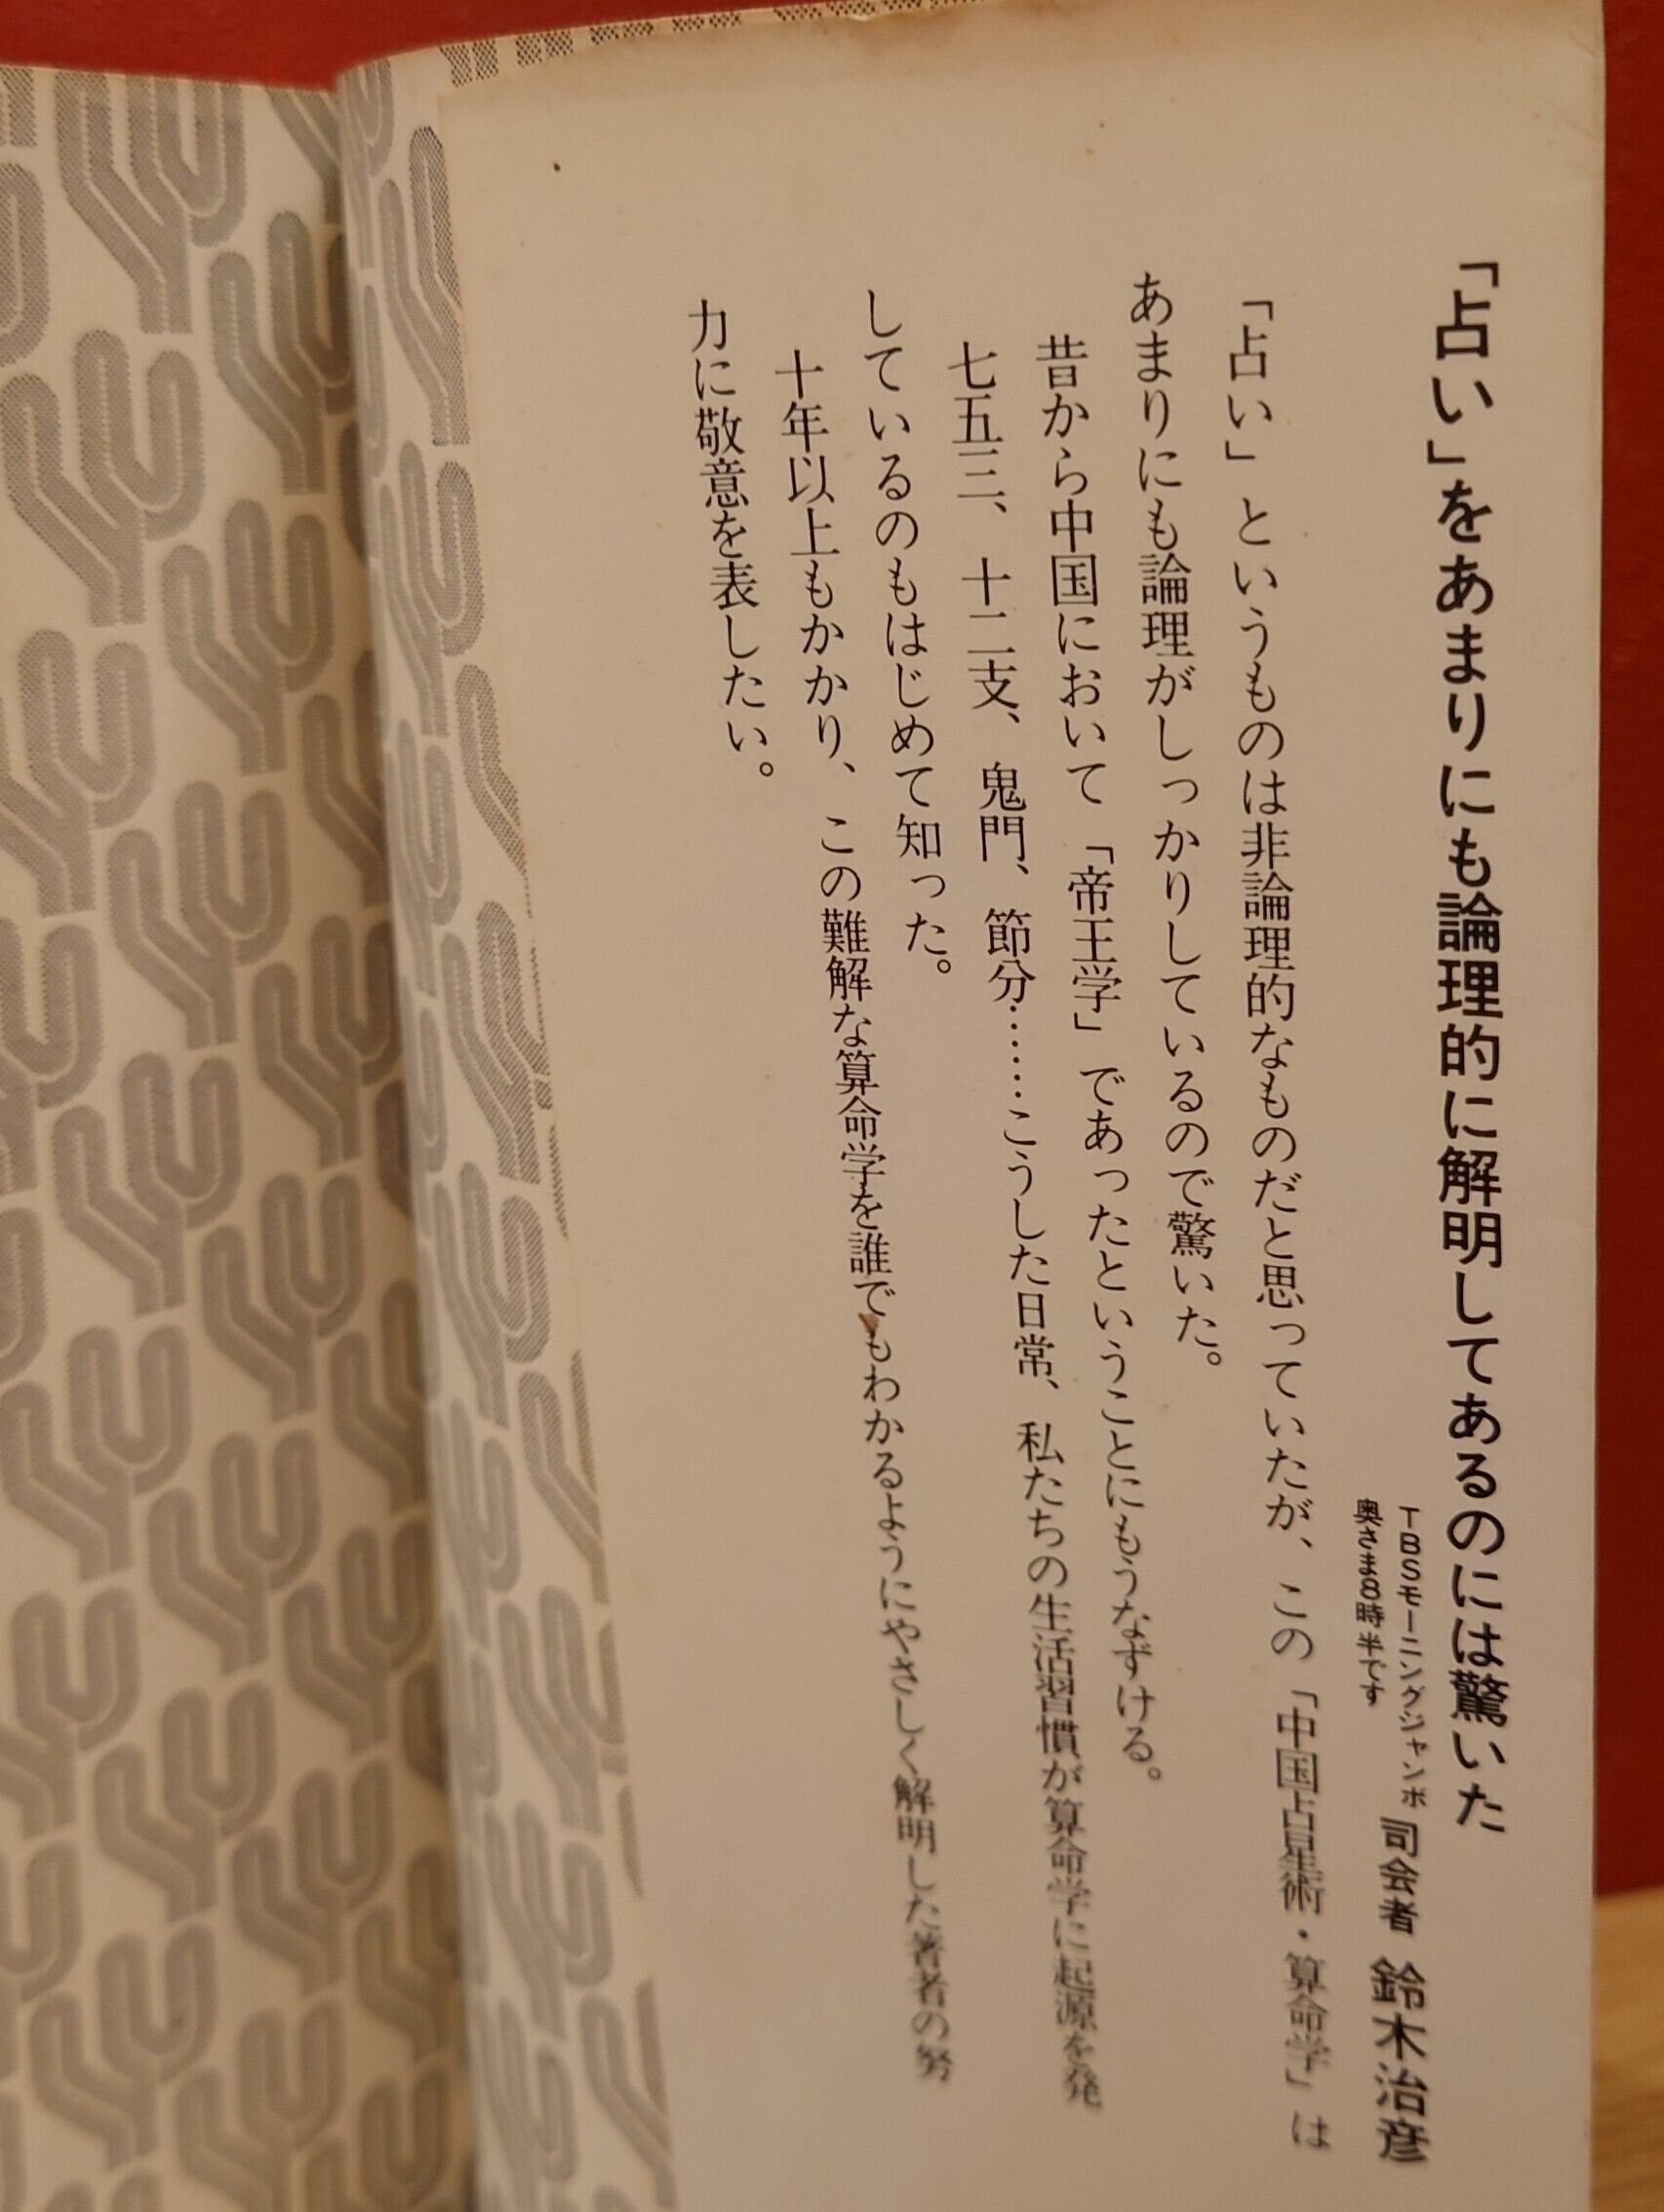 「占い」をあまりにも論理的に解明してあるのには驚いた
TBSモーニングジャンボ
奥さま8時半です
司会者 鈴木治彦
「占い」というものは非論理的なものだと思っていたが、この「中国占星術・算命学」は
あまりにも論理がしっかりしているので驚いた。
昔から中国において「帝王学」であったということにもうなずける。
七五三、十二支、鬼門、節分……こうした日常、私たちの生活習慣が算命学に起源を発
しているのもはじめて知った。
十年以上もかかり、この難解な算命学を誰でもわかるようにやさしく解明した著者の努
力に敬意を表したい。